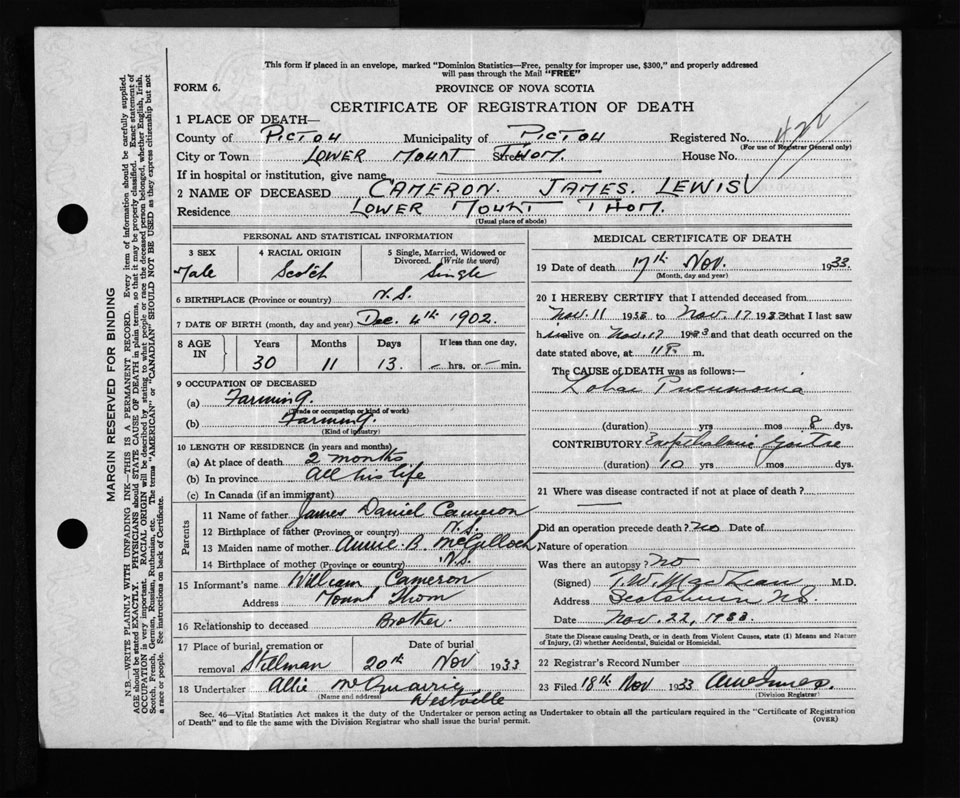 This form if placed in an envelope, marked "Dominion Statistics—Free, penalty for improper use, $300," and properly addressed
will pass through the Mail "FREE"
FORM 6.
PROVINCE OF NOVA SCOTIA
CERTIFICATE OF REGISTRATION OF DEATH
1 PLACE OF DEATH—
County of PICTOU Municipality of PICTOU Registered No.
(For use of Registrar General only)
City or Town LOWER MOUNT THOM. Street House No.
If in hospital or institution, give name
2 NAME OF DECEASED CAMERON. JAMES. LEWIS
Residence LOWER MOUNT THOM.
(Usual place of abode)
PERSONAL AND STATISTICAL INFORMATION
3 SEX 4 RACIAL ORIGIN 5 Single, Married, Widowed or
Divorced. (Write the word)
Male Scotch Single
6 BIRTHPLACE (Province or country) N.S.
7 DATE OF BIRTH (month, day and year) Dec. 4th 1902.
8 AGE IN Years Months Days If less than one day,
30 11 13. — hrs. or — min.
9 OCCUPATION OF DECEASED
(a) Farming.
(Trade or occupation or kind of work)
(b) Farming.
(Kind of industry)
10 LENGTH OF RESIDENCE (in years and months)
(a) At place of death 2 months
(b) In province All his life
(c) In Canada (if an immigrant)
Parents
11 Name of father James Daniel Cameron
12 Birthplace of father (Province or country) N.S.
13 Maiden name of mother Annie. B. McCulloch
14 Birthplace of mother (Province or country) N.S.
15 Informant's name William Cameron
Address Mount Thom
16 Relationship to deceased Brother.
17 Place of burial, cremation or Date of burial
removal Stillman 20th Nov 1933
18 Undertaker Allie McQuarrie
(Name and address) Westville
MEDICAL CERTIFICATE OF DEATH
19 Date of death 17th Nov. 1933.
(Month, day and year)
20 I HEREBY CERTIFY that I attended deceased from
Nov. 11 1933 to Nov. 17 1933 that I last saw
him alive on Nov. 17 1933 and that death occurred on
date stated above, at 11 P. m.
The CAUSE of DEATH was as follows:—
Lobar Pneumonia
(duration) yrs mos 8 dys.
CONTRIBUTORY Exophthalmic Goitre
(duration) 10 yrs mos dys.
21 Where was disease contracted if not at place of death?
Did an operation precede death? No Date of
Nature of operation
Was there an autopsy? No
(Signed) M.D.
Address Scotsburn N.S.
Date Nov. 22, 1933.
State the Disease causing Death, or in death from Violent Causes, state (1) Means and Nature
of Injury, (2) whether Accidental, Suicidal or Homicidal.
22 Registrar's Record Number
23 Filed 18th Nov 1933
(Division Registrar)
Sec. 46—Vital Statistics Act makes it the duty of the Undertaker or person acting as Undertaker to obtain all the particulars required in the "Certificate of Registration
of Death" and to file the same with the Division Registrar who shall issue the burial permit.
(OVER)
MARGIN RESERVED FOR BINDING
N.B.—WRITE PLAINLY WITH UNFADING INK—THIS IS A PERMANENT RECORD. Every item of information should be carefully supplied.
AGE should be stated EXACTLY. PHYSICIANS should STATE CAUSE OF DEATH in plain terms, so that it may be properly classified. Exact statement of
OCCUPATION is very important. RACIAL ORIGIN will be described by stating to what people or race the deceased person belonged, whether English, Irish,
Scotch, French, German, Russian, Ruthenian, etc. The terms "AMERICAN" or "CANADIAN" SHOULD NOT BE USED as they express citizenship but not
a race or people. See instructions on back of Certificate.